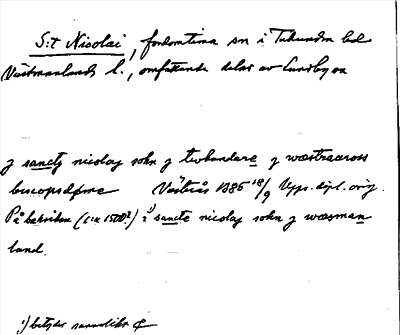 S:t Nicolai, fordomtima sn i Tuhundra hd
Västmanlands l., omfattande delar av Lundbyn
j sancty nicolay sokn j twhundare j wæstraaross
biscopsdøme Västerås 1386 18/9 Upps. dipl. orig.
På baksidan (c:a 1500?) i 1) sancte nicolay sokn j wæsman
land.
1) betyder sannolikt